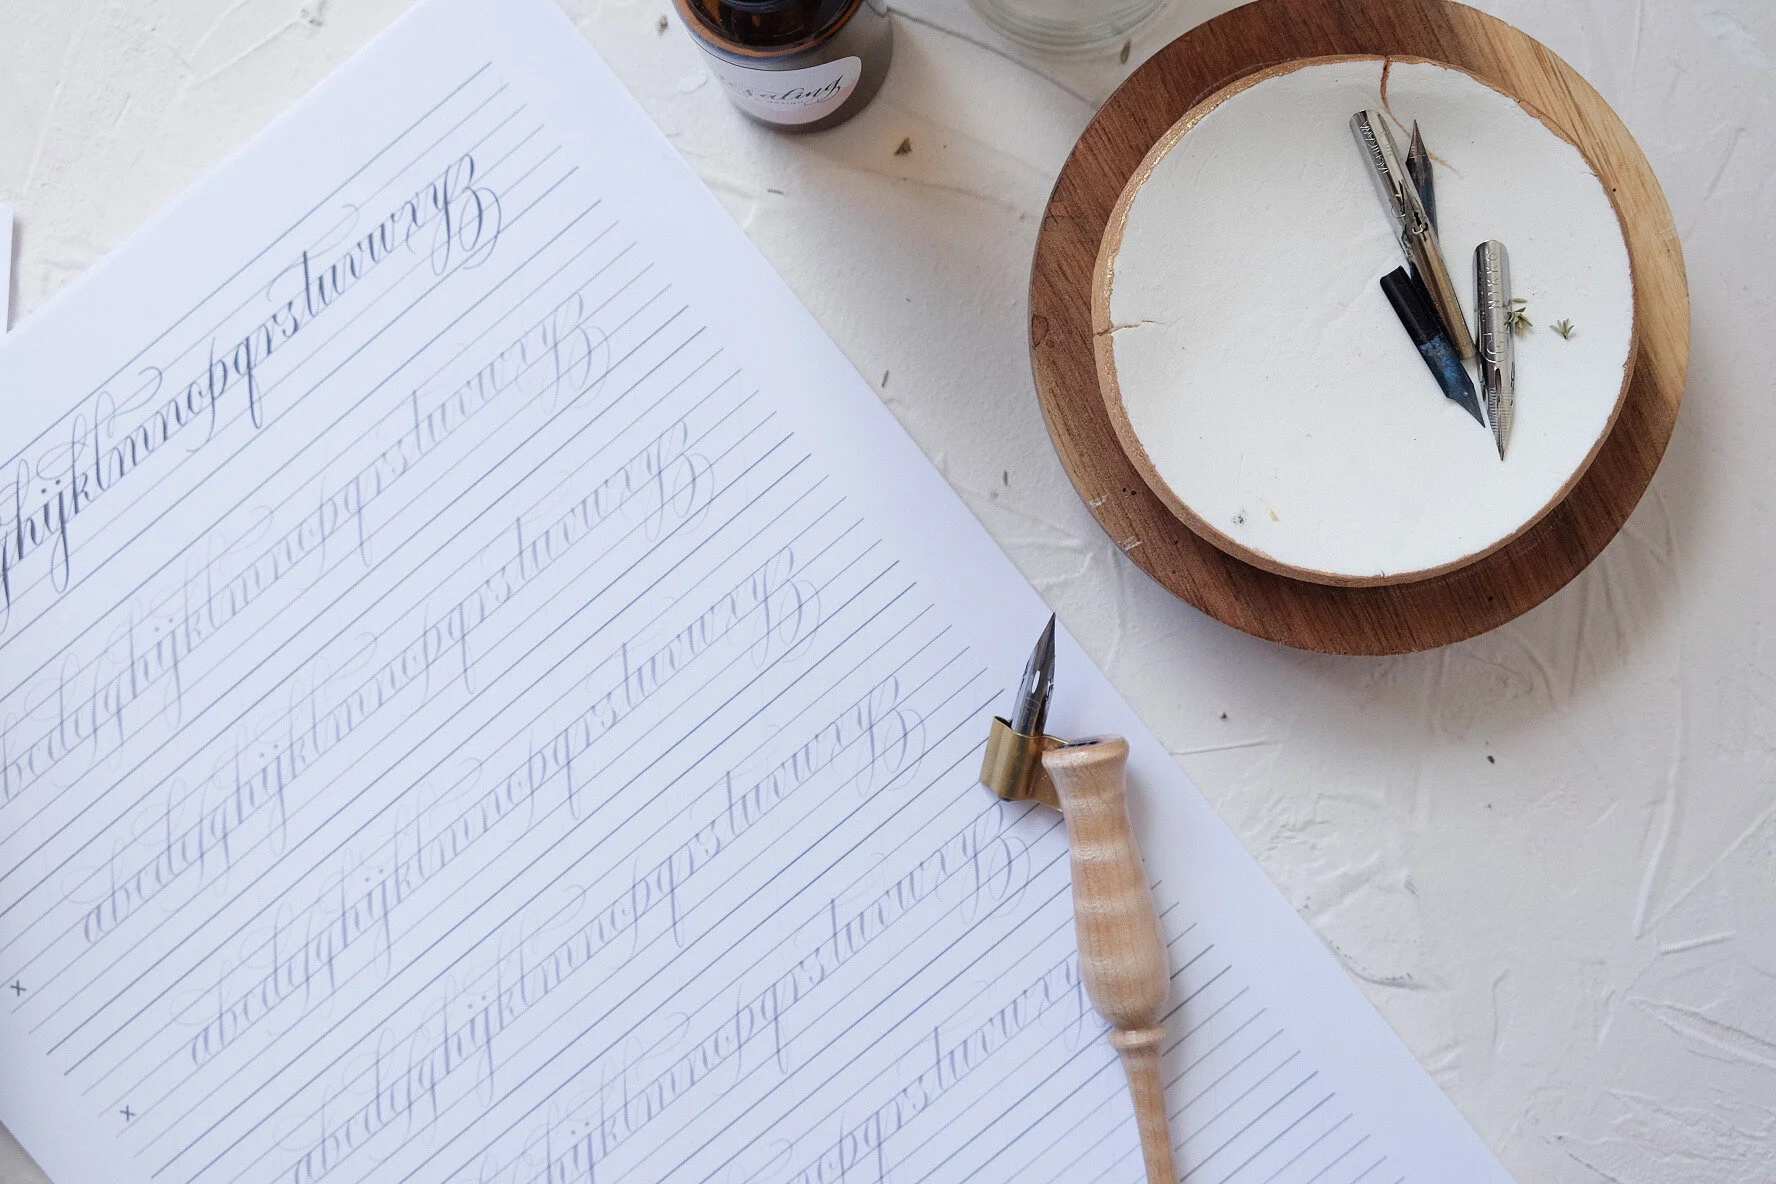 ghijklmnopqrstuvwxyz
bcdefghijklmnopqrstuvwxyz
abcdefghijklmnopqrstuvwxyz
abcdefghijklmnopqrstuvwxyz
abcdefghijklmnopqrstuvwxyz
hijklmnopqrstuvwxyz
opqrstuvwxy
x
x
NIKKO G